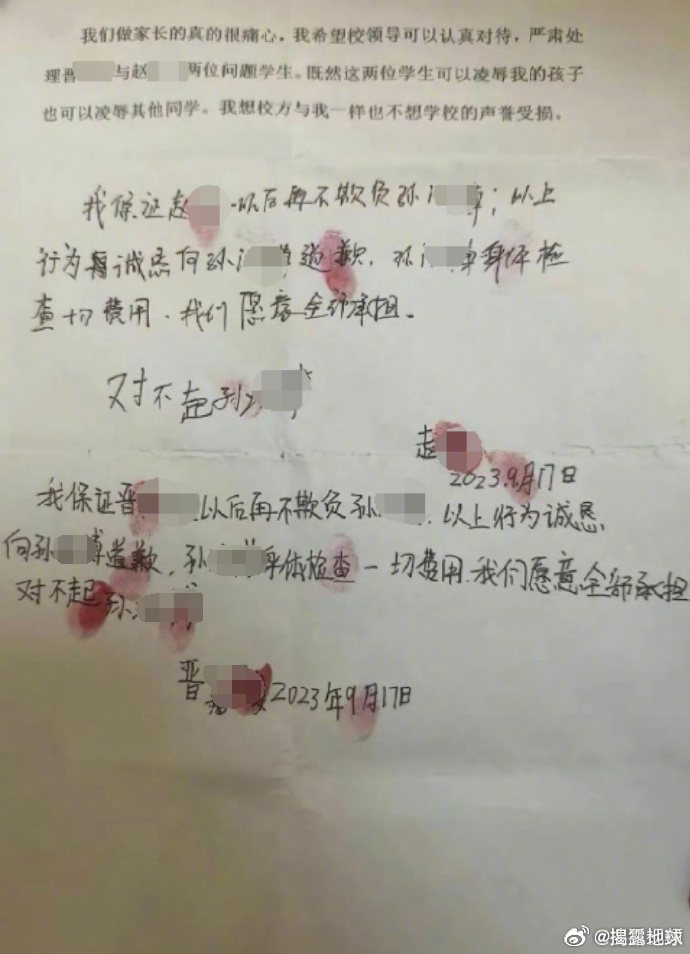 我们做家长的真的很痛心，我希望校领导可以认真对待，严肃处
理晋与赵两位问题学生。既然这两位学生可以凌辱我的孩子
也可以凌辱其他同学。我想校方与我一样也不想学校的声誉受损。
我保证赵以后再不欺负孙；以上
行为诚恳向孙道歉，孙身体检
查一切费用、我们愿意全部承担。
对不起孙
赵
2023.9月17日
我保证晋以后再不欺负孙，以上行为诚恳
向孙道歉，孙身体检查一切费用、我们愿意全部承担
对不起孙
晋
2023年9月17日
@揭露地球